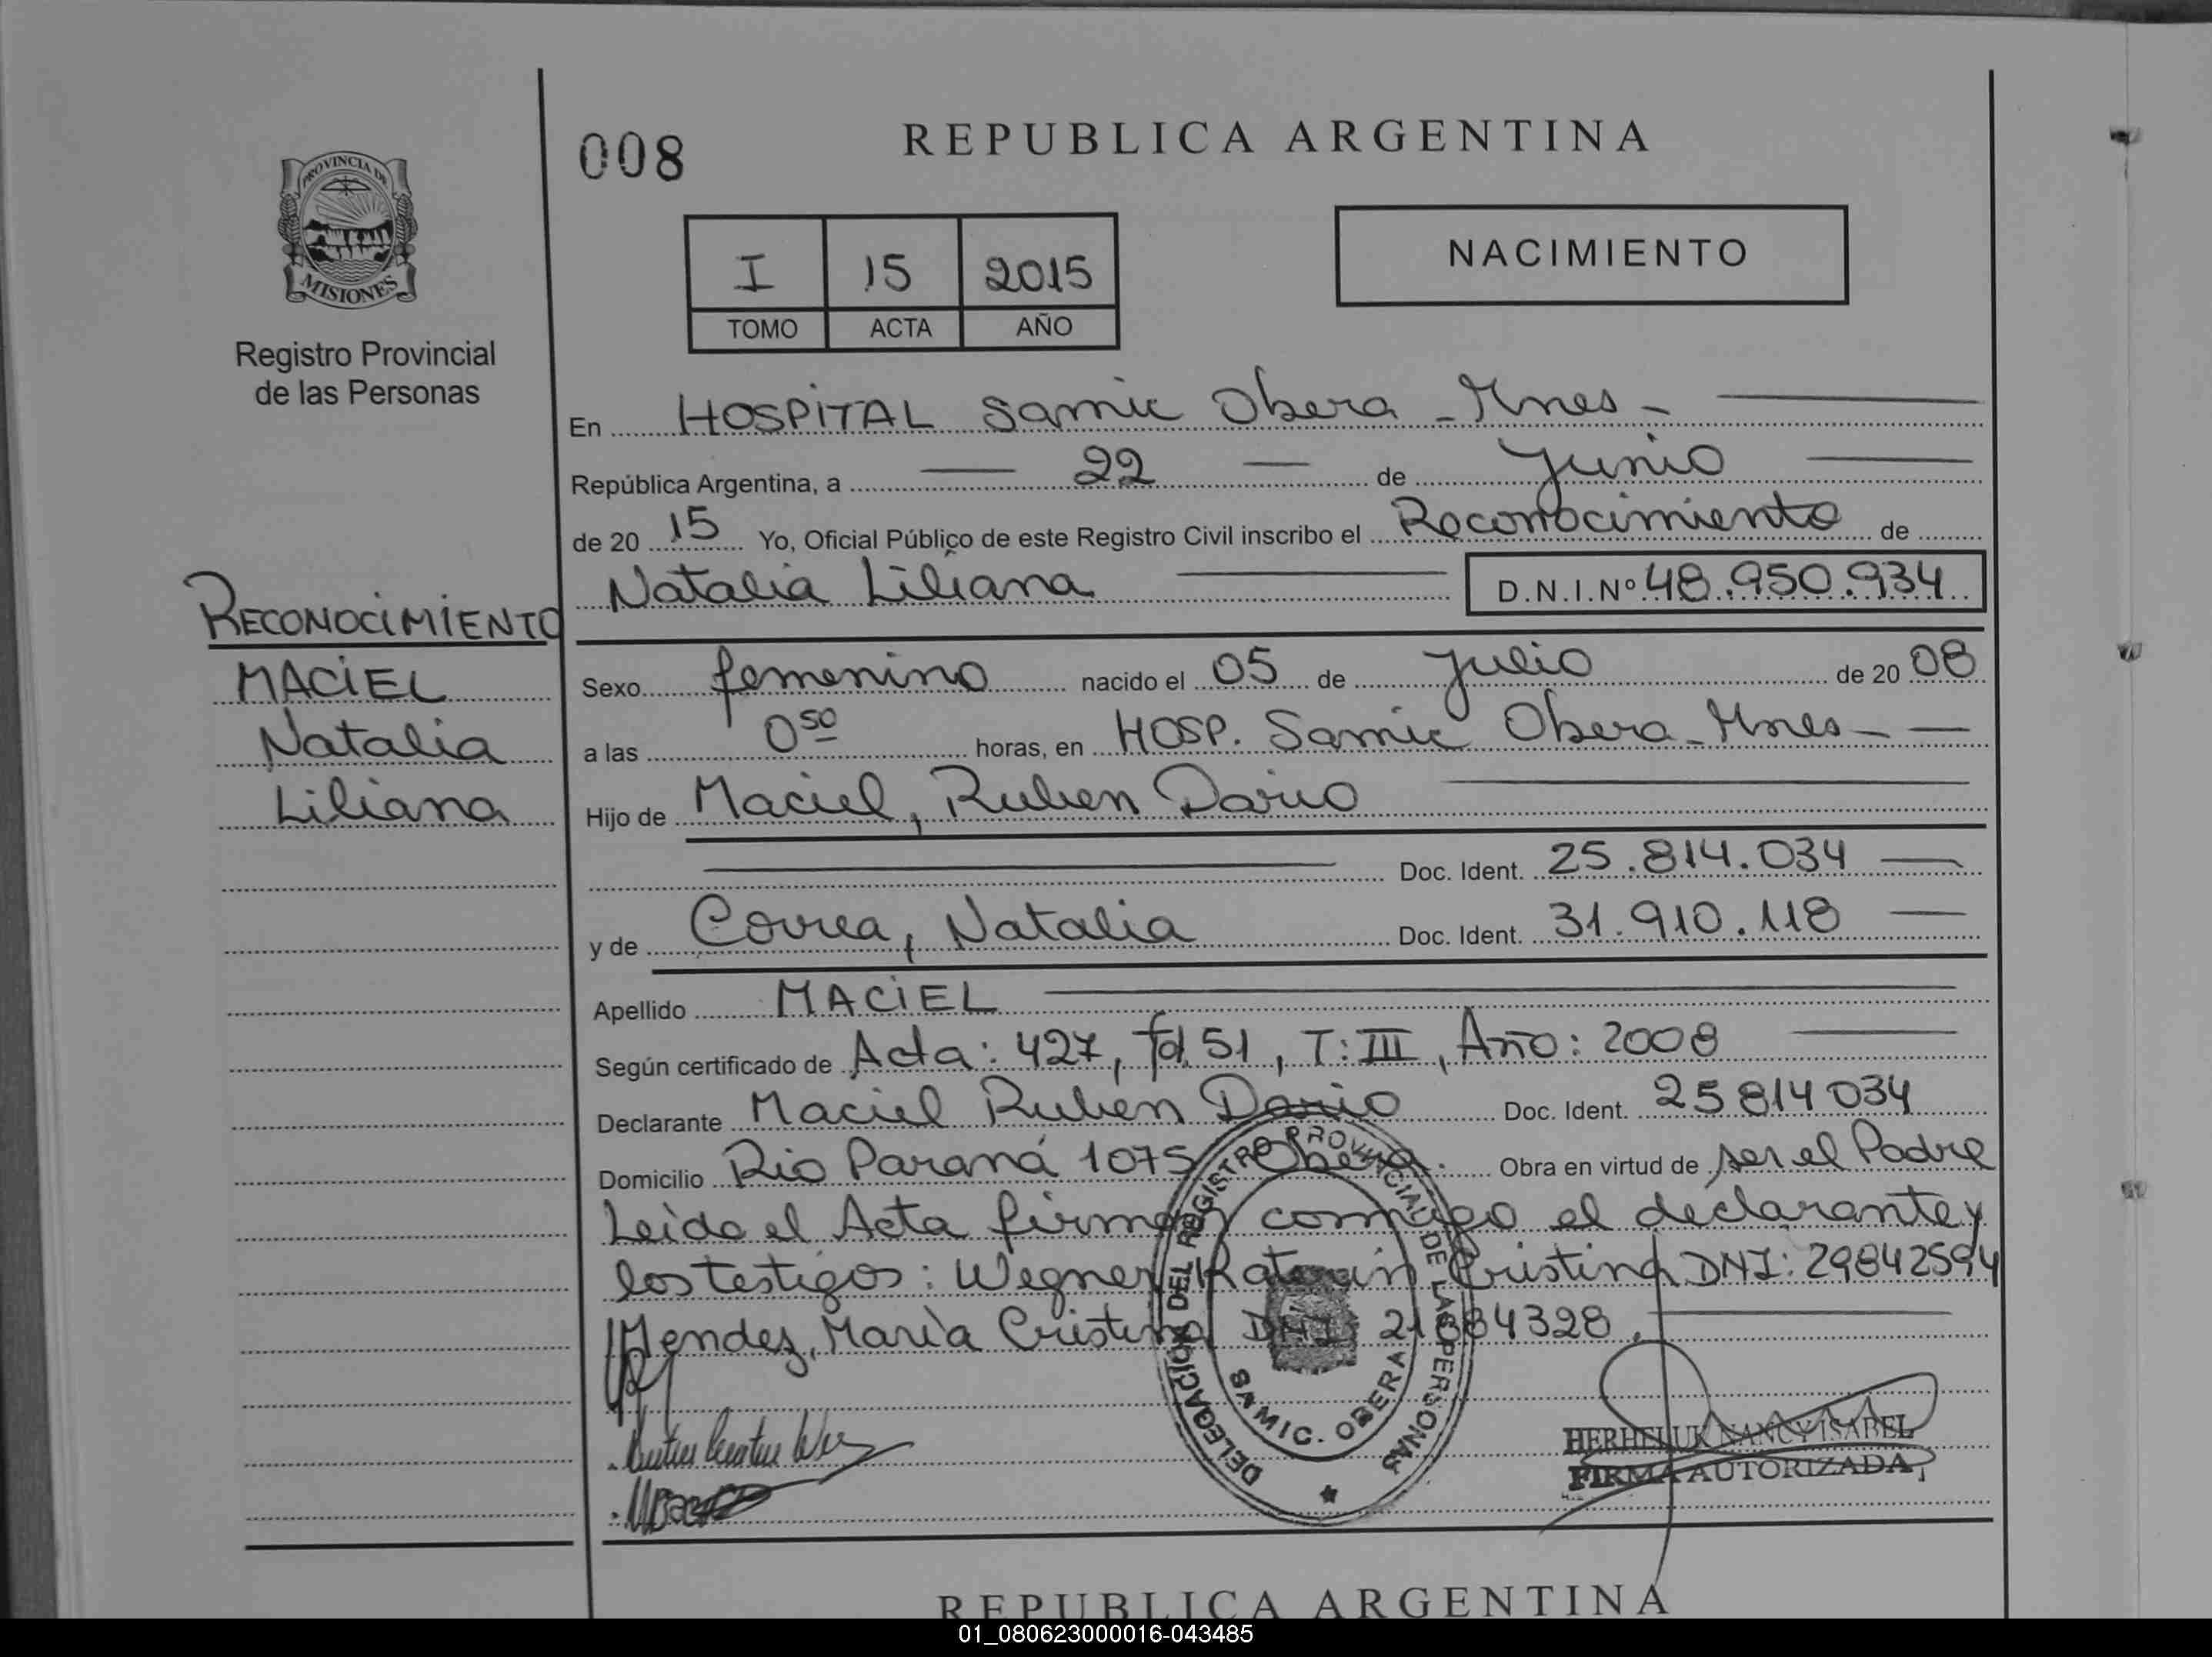 008
REPUBLICA ARGENTINA
PROVINCIA DE
MISIONES
Registro Provincial
de las Personas
I 15 2015
TOMO ACTA AÑO
NACIMIENTO
En HOSPITAL Samic Obera - Mnes -
República Argentina, a 22 de Junio
de 20 15 Yo, Oficial Público de este Registro Civil inscribo el Reconocimiento de
Natalia Liliana D.N.I.Nº 48.950.934
RECONOCIMIENTO
MACIEL
Natalia
Liliana
Sexo femenino nacido el 05 de Julio de 20 08
a las 0 50 horas, en HOSP. Samic Obera - Mnes -
Hijo de Maciel, Ruben Dario
Doc. Ident. 25.814.034
y de Correa, Natalia Doc. Ident. 31.910.118
Apellido MACIEL
Según certificado de Acta: 427, Fol 51, T: III, Año: 2008
Declarante Maciel Ruben Dario Doc. Ident. 25814034
Domicilio Rio Paraná 1075 Obera. Obra en virtud de ser el Padre
Leida el Acta firman conmigo el declarante y
los testigos: Wegner Cristina DNI: 29842594
Mendez, Maria Cristina DNI
DELEGACION DEL REGISTRO PROVINCIAL DE LAS PERSONAS
SAMIC. OBERA
HERHELUK NANCY ISABEL
FIRMA AUTORIZADA
REPUBLICA ARGENTINA
01_080623000016-043485